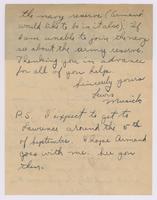 the navy reserve (Armand
would like to be in it also). If
I am unable to join the navy
so about the army reserve.
Thanking you in advance
for all of you help.
Sincerely yours
Lewis
P.S. I expect to get to
Lawrence around the 5th
of September. I hope Armand
goes with me. See you
then.